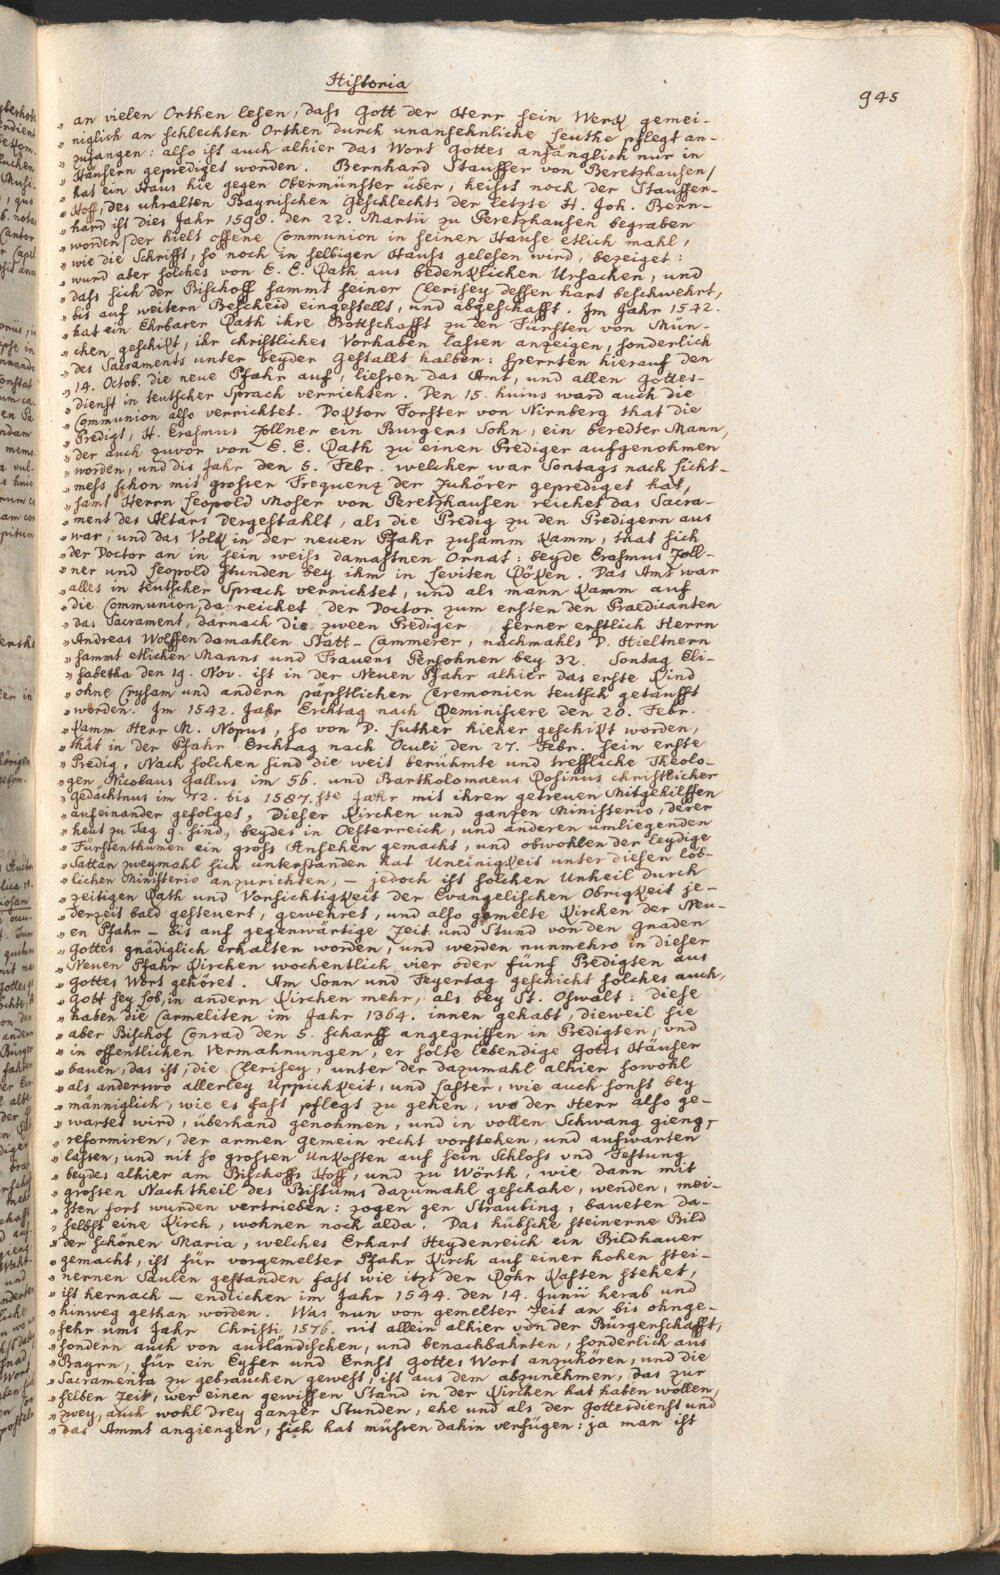 Historia
945
„ an vielen Orthen lesen, dass Gott der Herr sein Werck gemei-
„ niglich an schlechten Orthen durch unansehnliche Leuthe pflegt an-
„ zufangen: also ist auch alhier das Wort Gottes anfänglich nur in
„ Häusern geprediget worden. Bernhard Stauffer von Beretzhausen /
„ hat ein Haus hie gegen Obermünster über, heisst noch der Stauffer-
„ Hoff, des uhralten Bayrischen Geschlechts der letzte H. Joh. Bern-
„ hard ist dies Jahr 1598. den 22. Martii zu Peretzhausen begraben
„ worden / der hielt offene Communion in seinen Hause etlich mahl,
„ wie die Schrifft, so noch in selbigen Hauss gelesen wird, bezeiget:
„ wurd aber solches von E. E. Rath aus bedencklichen Ursachen, und
„ dass sich der Bischoff sammt seiner Clerisey dessen hart beschwehrt,
„ bis auf weitern Bescheid eingestellt, und abgeschafft. Im Jahr 1542.
„ hat ein Ehrbarer Rath ihre Bottschafft zu den Fürsten von Mün-
„ chen geschikt, ihr christliches Vorhaben lassen anzeigen, sonderlich
„ des Sacraments unter beyder Gestallt halben: sperrten hierauf den
„ 14. Octob. die neue Pfahr auf, liessen das Amt, und allen Gottes-
„ dienst in teutscher Sprach verrichten. Den 15. huius ward auch die
„ Communion also verrichtet. Doktor Forster von Nirnberg that die
„ Predigt, H. Erasmus Zollner ein Burgers Sohn, ein beredter Mann,
„ der auch zuvor von E. E. Rath zu einen Prediger aufgenohmen
„ worden, und dis Jahr den 5. Febr. welcher war Sontags nach Licht-
„ mess schon mit grossen Frequenz der Zuhörer geprediget hat,
„ samt Herrn Leopold Moser von Peretzhausen reichet das Sacra-
„ ment des Altars dergestahlt, als die Predig zu den Predigern aus
„ war, und das Volk in der neuen Pfahr zusamm kamm, that sich
„ der Doctor an in sein weiss damastnen Ornat: beyde Erasmus Zoll-
„ ner und Leopold stunden bey ihm in Leviten Röken. Das Amt war
„ alles in teutscher Sprach verrichtet, und als mann kamm auf
„ die Communion, da reichet der Doctor zum ersten den Praedicanten
„ das Sacrament, darnach die zween Prediger ferner erstlich Herrn
„ Andreas Wolffen damahlen Statt-Cammerer, nachmahls D. Hieltnern
„ sammt etlichen Manns und Frauens Persohnen bey 32. Sontag Eli-
„ sabetha den 19. Nov. ist in der Neuen Pfahr alhier das erste Kind
„ ohne Crysam und andern päpstlichen Ceremonien teutsch getaufft
„ worden. Im 1542. Jahr Erchtag nach Reminiscere den 20. Febr.
„ kamm Herr M. Nopus, so von D. Luther hieher geschikt worden,
„ thät in der Pfahr Erchtag nach Oculi den 27. Febr. sein erste
„ Predig, Nach solchen sind die weit berühmte und treffliche Theolo-
„ gen Nicolaus Gallus im 56. und Bartholomaeus Rosinus christlicher
„ Gedächtnus im 72. bis 1587.ste Jahr mit ihren getreuen Mitgehilffen
„ aufeinander gefolget, dieser Kirchen und ganzen Ministerio, derer
„ heut zu Tag 9. sind, beydes in Oesterreich, und anderen umliegenden
„ Fürstenthumen ein gross Ansehen gemacht, und obwohlen der leydige
„ Sattan zweymahl sich unterstanden hat Uneinigkeit unter diesen löb-
„ lichen Ministerio anzurichten, — jedoch ist solchen Unheil durch
„ zeitigen Rath und Vorsichtigkeit der Evangelischen Obrigkeit je-
„ derzeit bald gesteuert, gewehret, und also gemelte Kirchen der Neu-
„ en Pfahr — bis auf gegenwärtige Zeit und Stund von den Gnaden
„ Gottes gnädiglich erhalten worden, und werden nunmehro in dieser
„ Neuen Pfahr Kirchen wochentlich vier oder fünf Predigten aus
„ Gottes Wort gehöret. Am Sonn und Feyertag geschicht solches auch,
„ Gott sey Lob, in andern Kirchen mehr, als bey St. Oswalt: diese
„ haben die Carmeliten im Jahr 1364. innen gehabt, dieweil sie
„ aber Bischof Conrad den 5. scharff angegriffen in Predigten, und
„ in offentlichen Vermahnungen, er solte lebendige Gotts Häuser
„ bauen, das ist, die Clerisey, unter der dazumahl alhier sowohl
„ als anderswo allerley Uppichkeit, und Laster, wie auch sonst bey
„ männiglich, wie es fast pflegt zu gehen, wo der Herr also ge-
„ wartet wird, überhand genohmen, und in vollen Schwang gieng,
„ reformiren, der armen Gemein recht vorstehen, und aufwarten
„ lassen, und nit so grossen Unkosten auf sein Schloss und Festung
„ beydes alhier am Bischoffs Hoff, und zu Wörth, wie dann mit
„ grossen Nachtheil des Bistums dazumahl geschahe, wenden, mei-
„ sten fort wurden vertrieben: zogen gen Straubing, baueten da-
„ selbst eine Kirch, wohnen noch alda. Das hübsche steinerne Bild
„ der schönen Maria, welches Erhart Heydenreich ein Bildhauer
„ gemacht, ist für vorgemelter Pfahr Kirch auf einer hohen stei-
„ nernen Saulen gestanden fast wie itzt der Rohr Kasten stehet,
„ ist hernach — endlichen im Jahr 1544. den 14. Junii herab und
„ hinweg gethan worden. Was nun von gemelter Zeit an bis ohnge-
„ fehr ums Jahr Christi 1576. nit allein alhier von der Bürgerschafft,
„ sondern auch von ausländischen, und benachbahrten, sonderlich aus
„ Bayrn, für ein Eyfer und Ernst Gottes Wort anzuhören, und die
„ Sacramenta zu gebrauchen gewest, ist aus dem abzunehmen, das zur
„ selben Zeit, wer einen gewissen Stand in der Kirchen hat haben wollen,
„ zwey, auch wohl drey ganzer Stunden, ehe und als der Gottesdienst und
„ das Ammt angiengen, sich hat müssen dahin verfügen: ja man ist